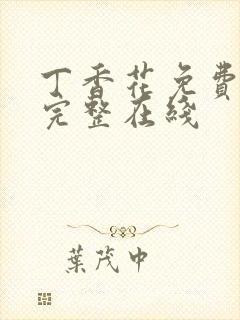 丁香花免费
完整在线
葉茂中